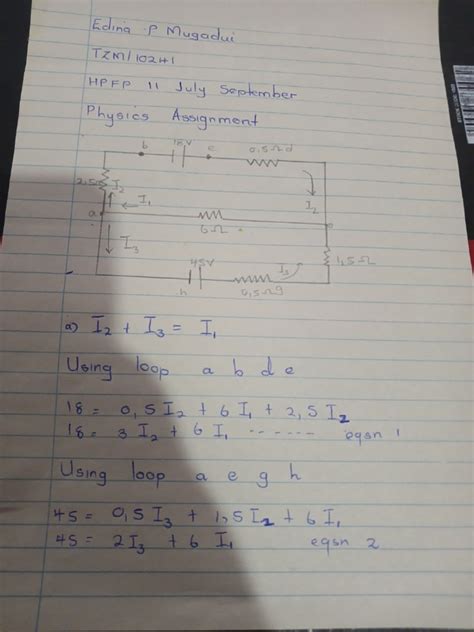 Edina P Mugadui
TZM/10241
HPFP 11 July September
Physics Assignment
b 18V c 0,5Ω d
2,5Ω I₂ I₁ I₂
a 6Ω e
I₃ 45V I₃ 1,5Ω
h 0,5Ω g
a) I₂ + I₃ = I₁
Using loop a b d e
18 = 0,5 I₂ + 6 I₁ + 2,5 I₂
18 = 3 I₂ + 6 I₁ ------ eqsn 1
Using loop a e g h
45 = 0,5 I₃ + 1,5 I₂ + 6 I₁
45 = 2 I₃ + 6 I₁ eqsn 2